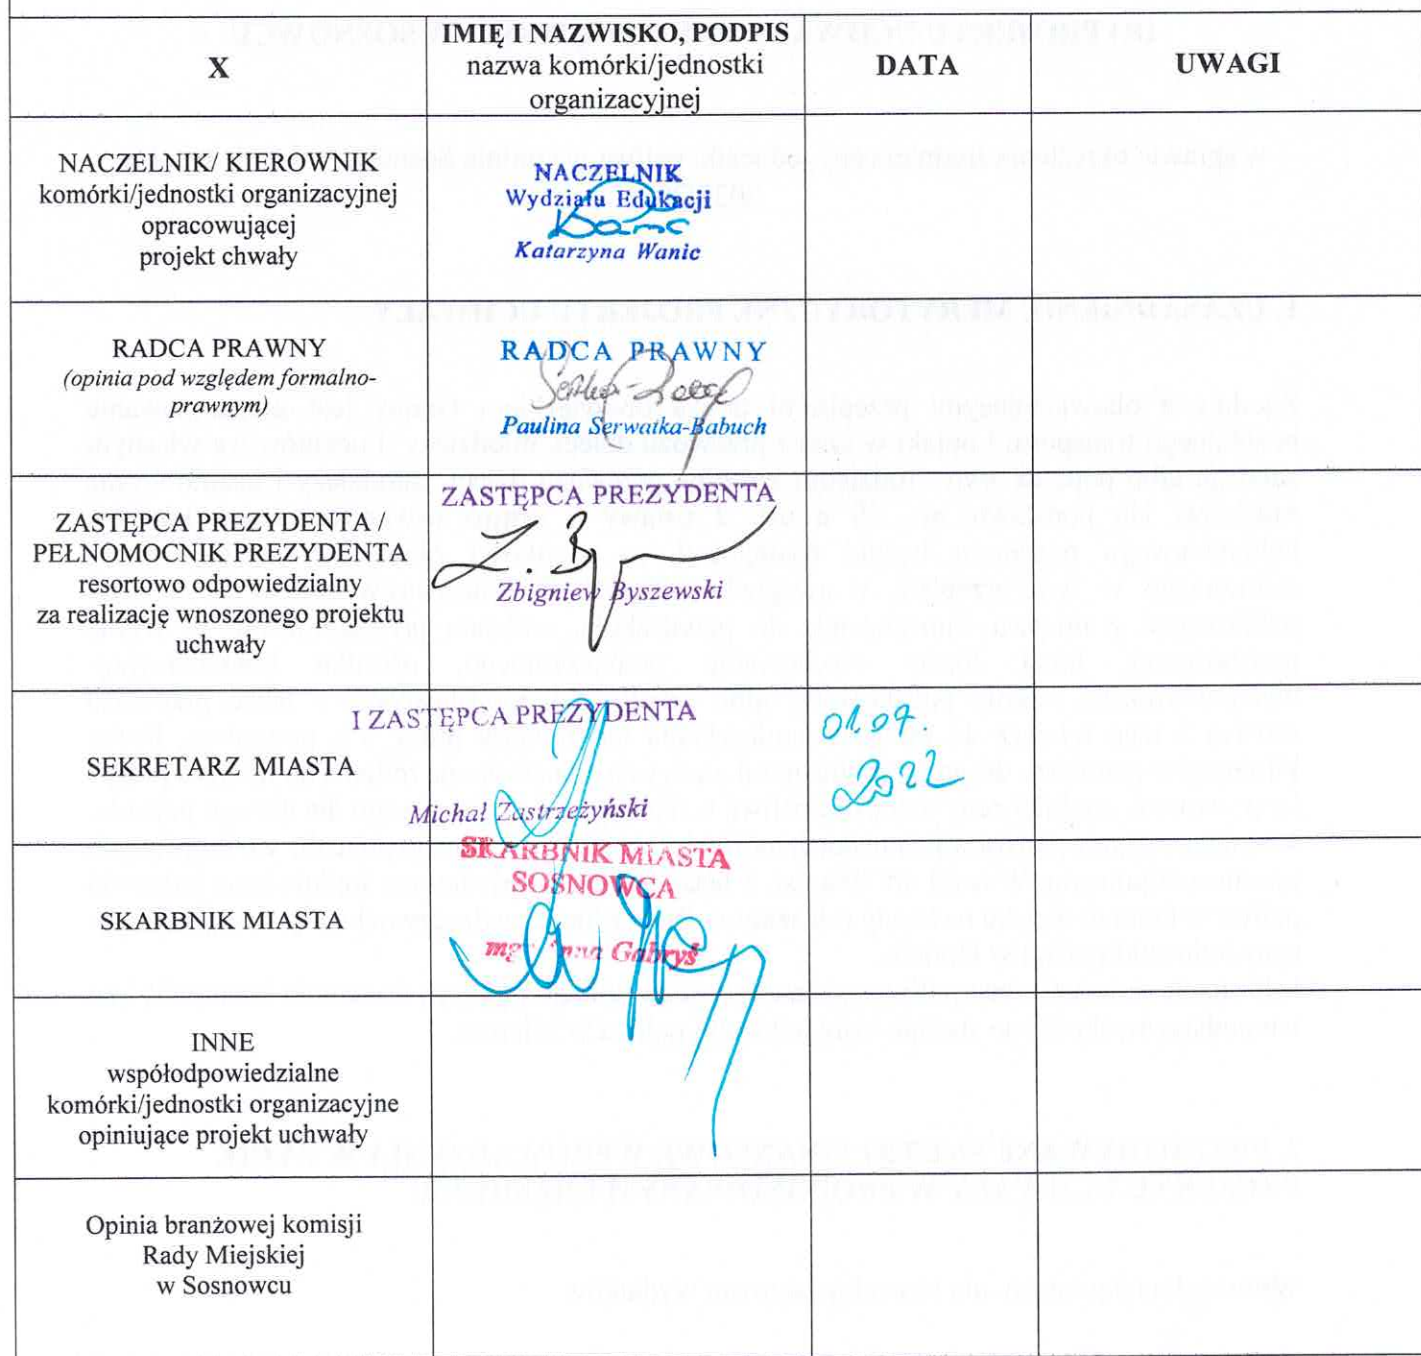 X
IMIĘ I NAZWISKO, PODPIS
nazwa komórki/jednostki
organizacyjnej
DATA
UWAGI
NACZELNIK/ KIEROWNIK
komórki/jednostki organizacyjnej
opracowującej
projekt chwały
NACZELNIK
Wydziału Edukacji
Katarzyna Wanic
RADCA PRAWNY
(opinia pod względem formalno-
prawnym)
RADCA PRAWNY
Paulina Serwatka-Babuch
ZASTĘPCA PREZYDENTA /
PEŁNOMOCNIK PREZYDENTA
resortowo odpowiedzialny
za realizację wnoszonego projektu
uchwały
ZASTĘPCA PREZYDENTA
Z. By
Zbigniew Byszewski
SEKRETARZ MIASTA
I ZASTĘPCA PREZYDENTA
Michał Zastrzeżyński
01.07.
2022
SKARBNIK MIASTA
SKARBNIK MIASTA
SOSNOWCA
mgr Anna Gabryś
INNE
współodpowiedzialne
komórki/jednostki organizacyjne
opiniujące projekt uchwały
Opinia branżowej komisji
Rady Miejskiej
w Sosnowcu